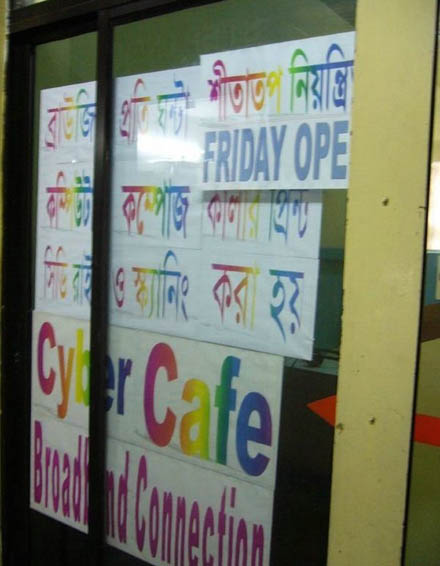 শীতাতপ নিয়ন্ত্রি
ব্রাউজি প্রতি ঘন্টা
FRIDAY OPE
কম্পিউট কম্পোজ কালার প্রিন্ট
সিডি রাই ও স্ক্যানিং করা হয়
Cyber Cafe
Broadband Connection